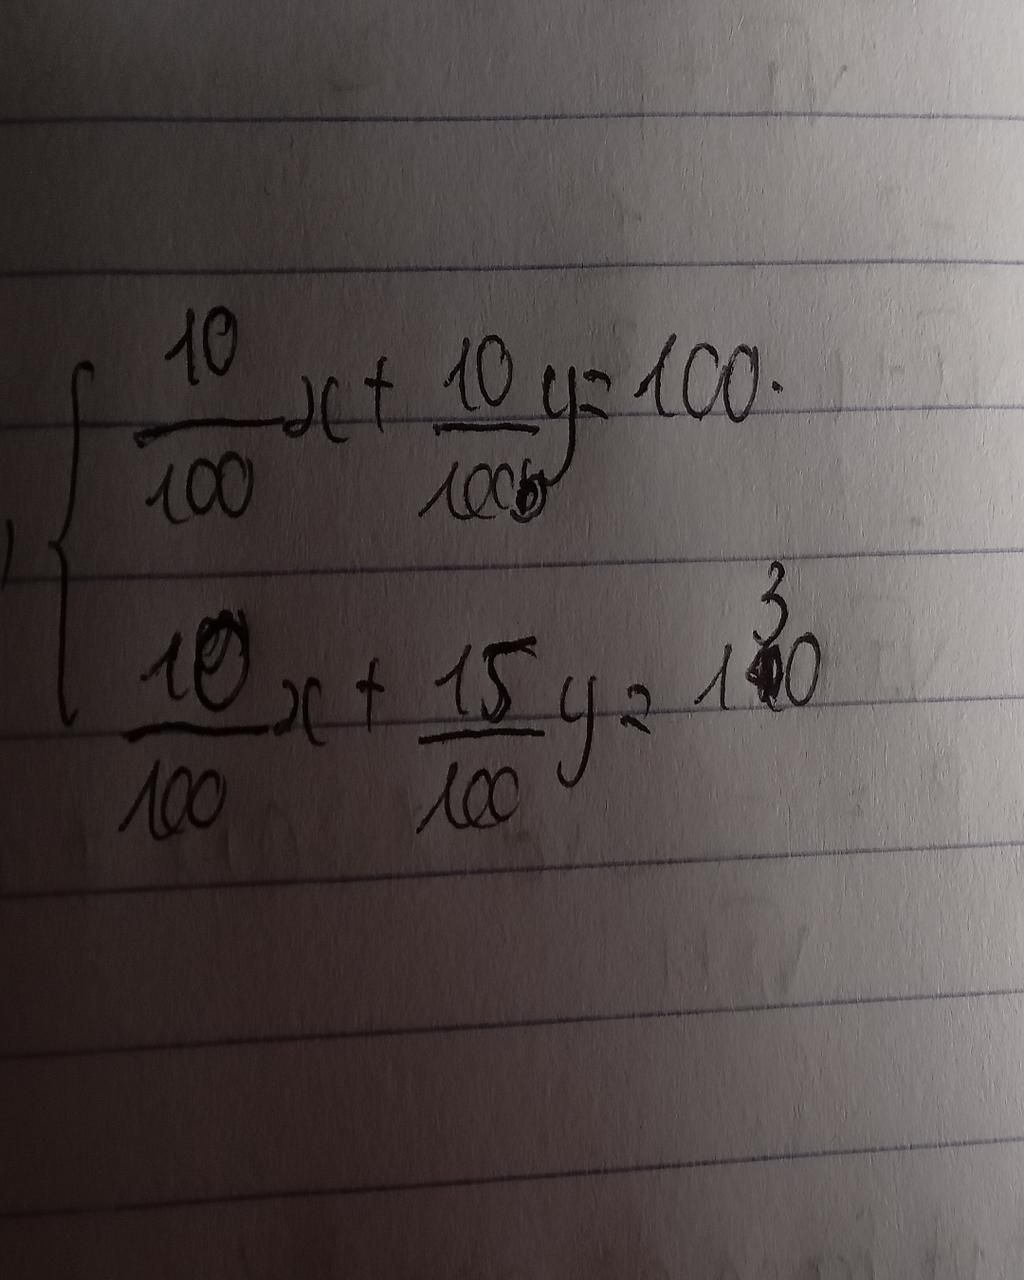 10/100 x + 10/100 y = 100.
10/100 x + 15/100 y = 130